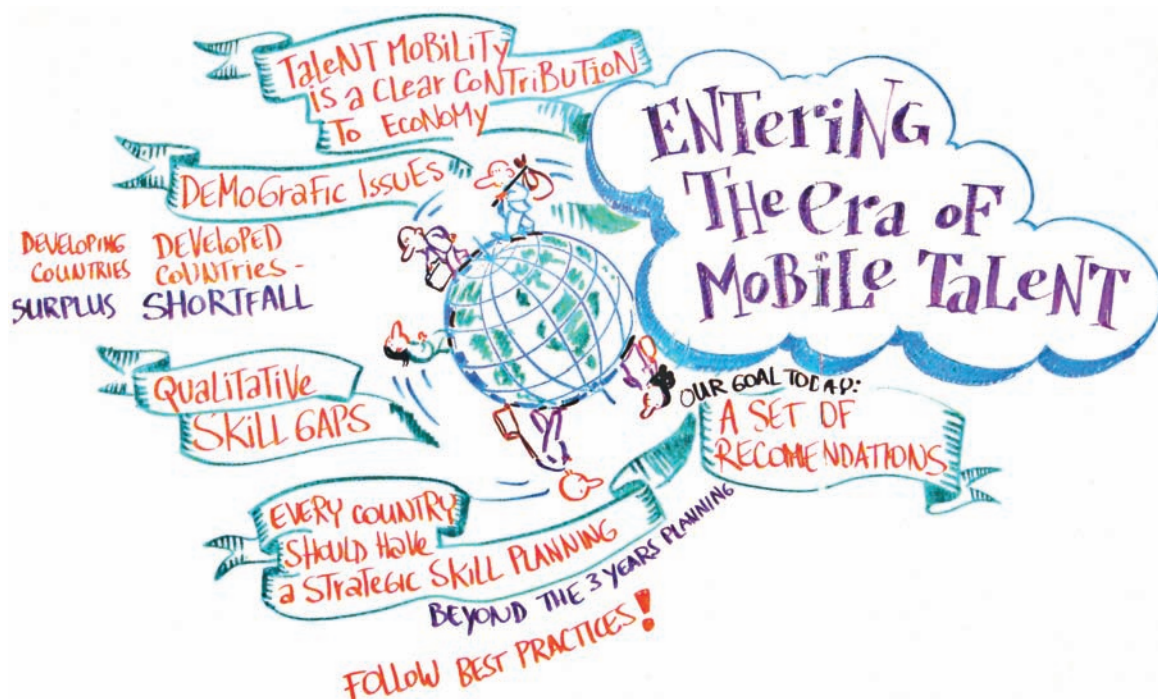 TaleNT MOBiLiTY
is a CLear CONTRiBUTiON
To ECoNOMY
ENTeriNG
THe era oF
MoBiLe TaLeNT
DEMOGrafic ISSUES
DEVELOPING
COUNTRIES
SURPLUS
DEVELOPED
COUNTries -
SHORTFALL
QUALiTATiVE
SKiLL GAPS
OUR GOAL TODAY:
A SET OF
RECOMENDATIONS
EVERY COUNTRY
SHOULD HAVe
a STraTeGIC SKILL PLANNING
BEYOND THE 3 YEARS PLANNING
FOLLOW BEST PRACTICES!